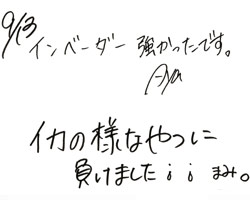 9/13
インベーダー強かったです。
Aya
イカの様なやつに
負けました；； まみ。